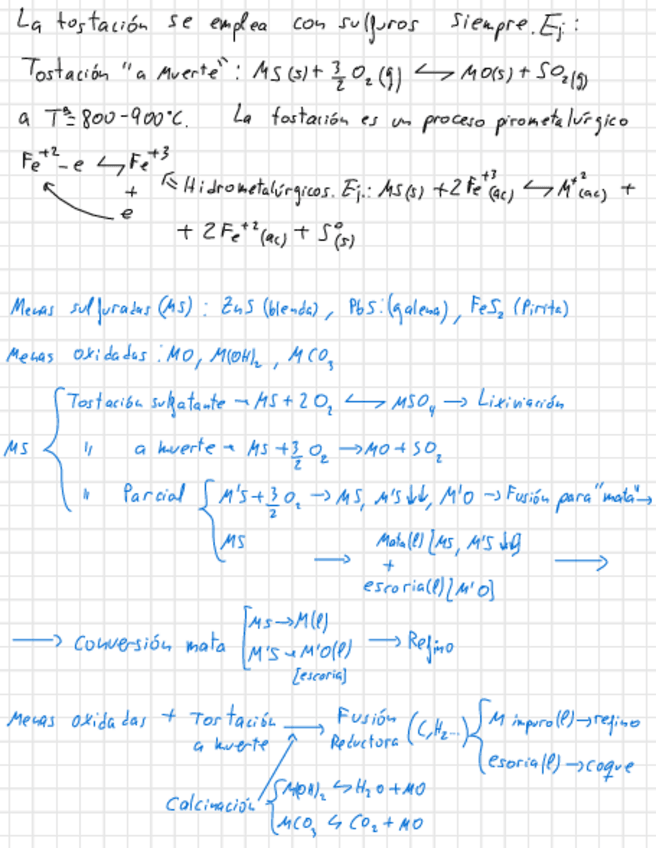 La tostación se emplea con sulfuros siempre. Ej:
Tostación "a Muerte": MS(s) + 3/2 O₂(g) ⇆ MO(s) + SO₂(g)
a Tª = 800-900°C. La tostación es un proceso pirometalúrgico
Fe⁺² - e ⇆ Fe⁺³
+
e
Hidrometalúrgicos. Ej.: MS(s) + 2Fe⁺³(ac) ⇆ M⁺²(ac) +
+ 2Fe⁺²(ac) + S⁰(s)
Menas sulfuradas (MS): ZnS (blenda), PbS: (galena), FeS₂ (Pirita)
Menas oxidadas: MO, M(OH)₂, MCO₃
MS
Tostación sulfatante → MS + 2O₂ ⇆ MSO₄ → Lixiviación
" a muerte → MS + 3/2 O₂ → MO + SO₂
" Parcial M'S + 3/2 O₂ → MS, M'S↓↓, M'O → Fusión para "mata" →
MS
→ Mata(l) [MS, M'S↓↓] →
+
escoria(l) [M'O]
→ Conversión mata
MS → M(l)
M'S → M'O(l)
[escoria]
→ Refino
Menas oxidadas + Tostación a muerte → Fusión Reductora (C, H₂...)
M impuro(l) → refino
esoria(l) → coque
Calcinación
M(OH)₂ ⇆ H₂O + MO
MCO₃ ⇆ CO₂ + MO